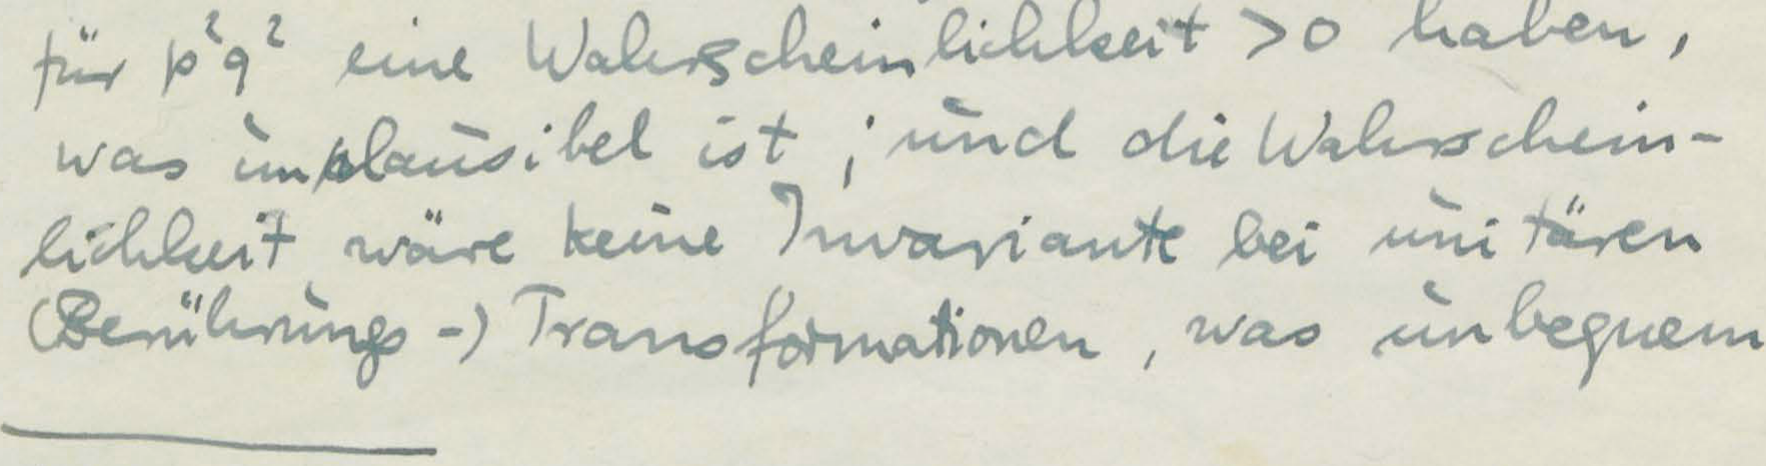 für p²q² eine Wahrscheinlichkeit >0 haben,
was implausibel ist; und die Wahrschein-
lichkeit wäre keine Invariante bei unitären
(Berührungs-) Transformationen, was unbequem